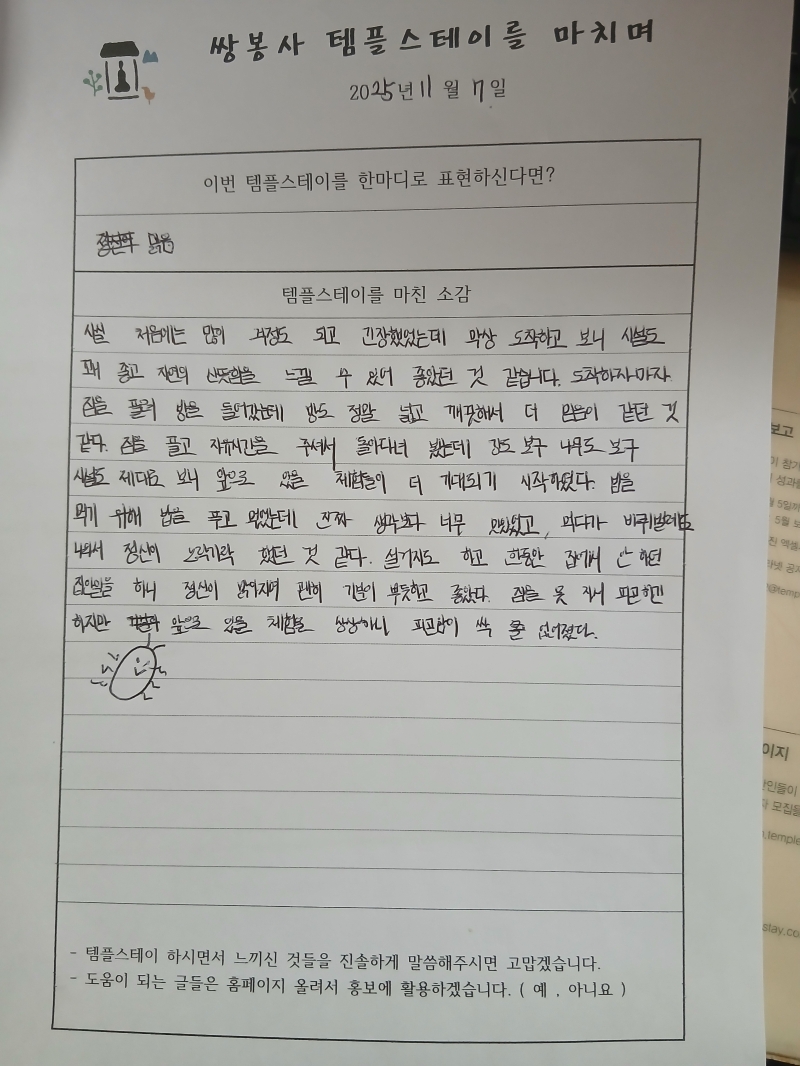 쌍봉사 템플스테이를 마치며
2025년 11월 7일
이번 템플스테이를 한마디로 표현하신다면?
정신의 맑음
템플스테이를 마친 소감
사실 처음에는 많이 걱정도 되고 긴장했었는데 막상 도착하고 보니 시설도
꽤 좋고 자연의 산뜻함을 느낄 수 있어 좋았던 것 같습니다. 도착하자마자
짐을 풀러 방을 들어갔는데 방도 정말 넓고 깨끗해서 더 믿음이 갔던 것
같다. 짐을 풀고 자유시간을 주셔서 돌아다녀 봤는데 강도 보구 나무도 보구
시설도 제대로 보니 앞으로 있을 체험들이 더 기대되기 시작하였다. 밥을
먹기 위해 밥을 푸고 먹었는데 진짜 생각보다 너무 맛있었고, 먹다가 바퀴벌레도
나와서 정신이 오락가락 했던 것 같다. 설거지도 하고 한동안 집에서 안 하던
집안일을 하니 정신이 맑아지며 괜히 기분이 뿌듯하고 좋았다. 잠을 못 자서 피곤하긴
하지만 앞으로 있을 체험을 상상하니 피곤함이 싹 없어졌다.
- 템플스테이 하시면서 느끼신 것들을 진솔하게 말씀해주시면 고맙겠습니다.
- 도움이 되는 글들은 홈페이지 올려서 홍보에 활용하겠습니다. ( 예 , 아니요 )
보고
이지
stay.co